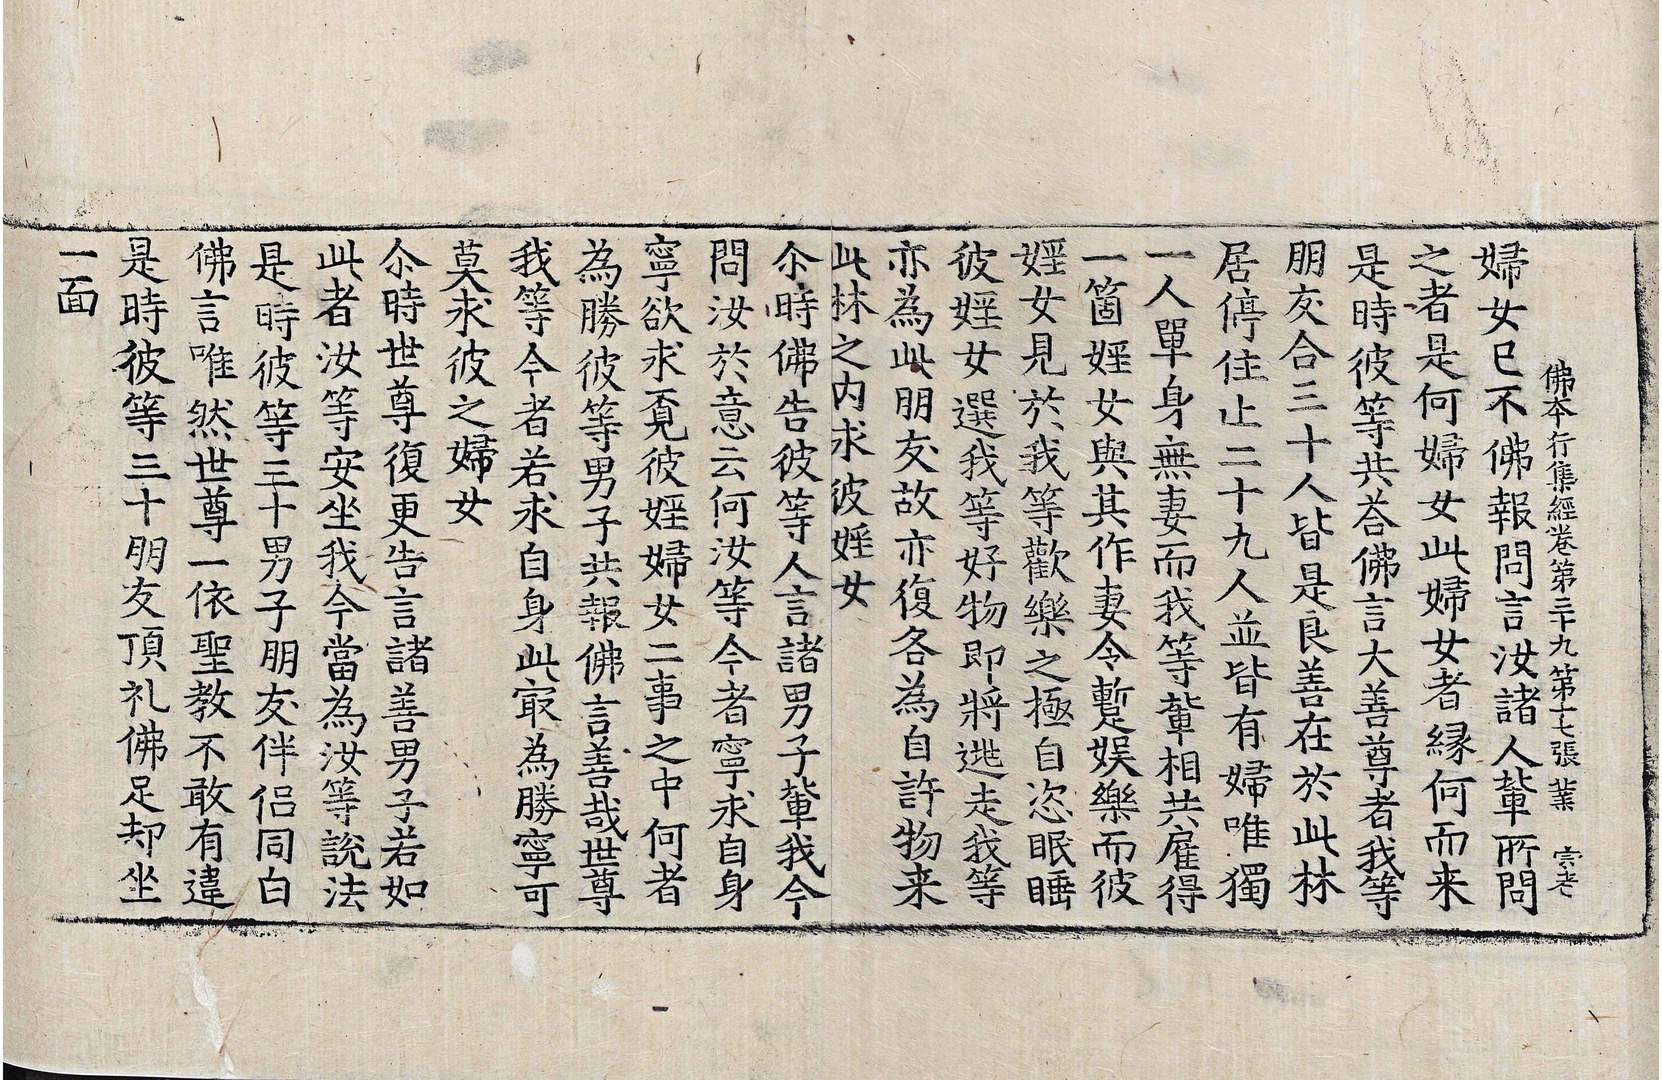 佛本行集經卷第三十九 第十七張 業 宗老
婦女已不佛報問言汝諸人輩所問
之者是何婦女此婦女者緣何而来
是時彼等共荅佛言大善尊者我等
朋友合三十人皆是良善在於此林
居停住止二十九人並皆有婦唯獨
一人單身無妻而我等輩相共雇得
一箇婬女與其作妻令蹔娛樂而彼
婬女見於我等歡樂之極自恣眠睡
彼婬女選我等好物即將逃走我等
亦為此朋友故亦復各為自許物来
此林之内求彼婬女
尒時佛告彼等人言諸男子輩我今
問汝於意云何汝等今者寧求自身
寧欲求覔彼婬婦女二事之中何者
為勝彼等男子共報佛言善哉世尊
我等今者若求自身此㝡為勝寧可
莫求彼之婦女
尒時世尊復更告言諸善男子若如
此者汝等安坐我今當為汝等說法
是時彼等三十男子朋友伴侣同白
佛言唯然世尊一依聖教不敢有違
是時彼等三十朋友頂礼佛足却坐
一面